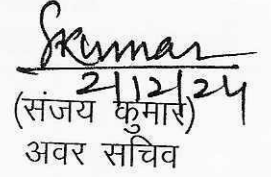 Skumar
2/12/24
(संजय कुमार)
अवर सचिव